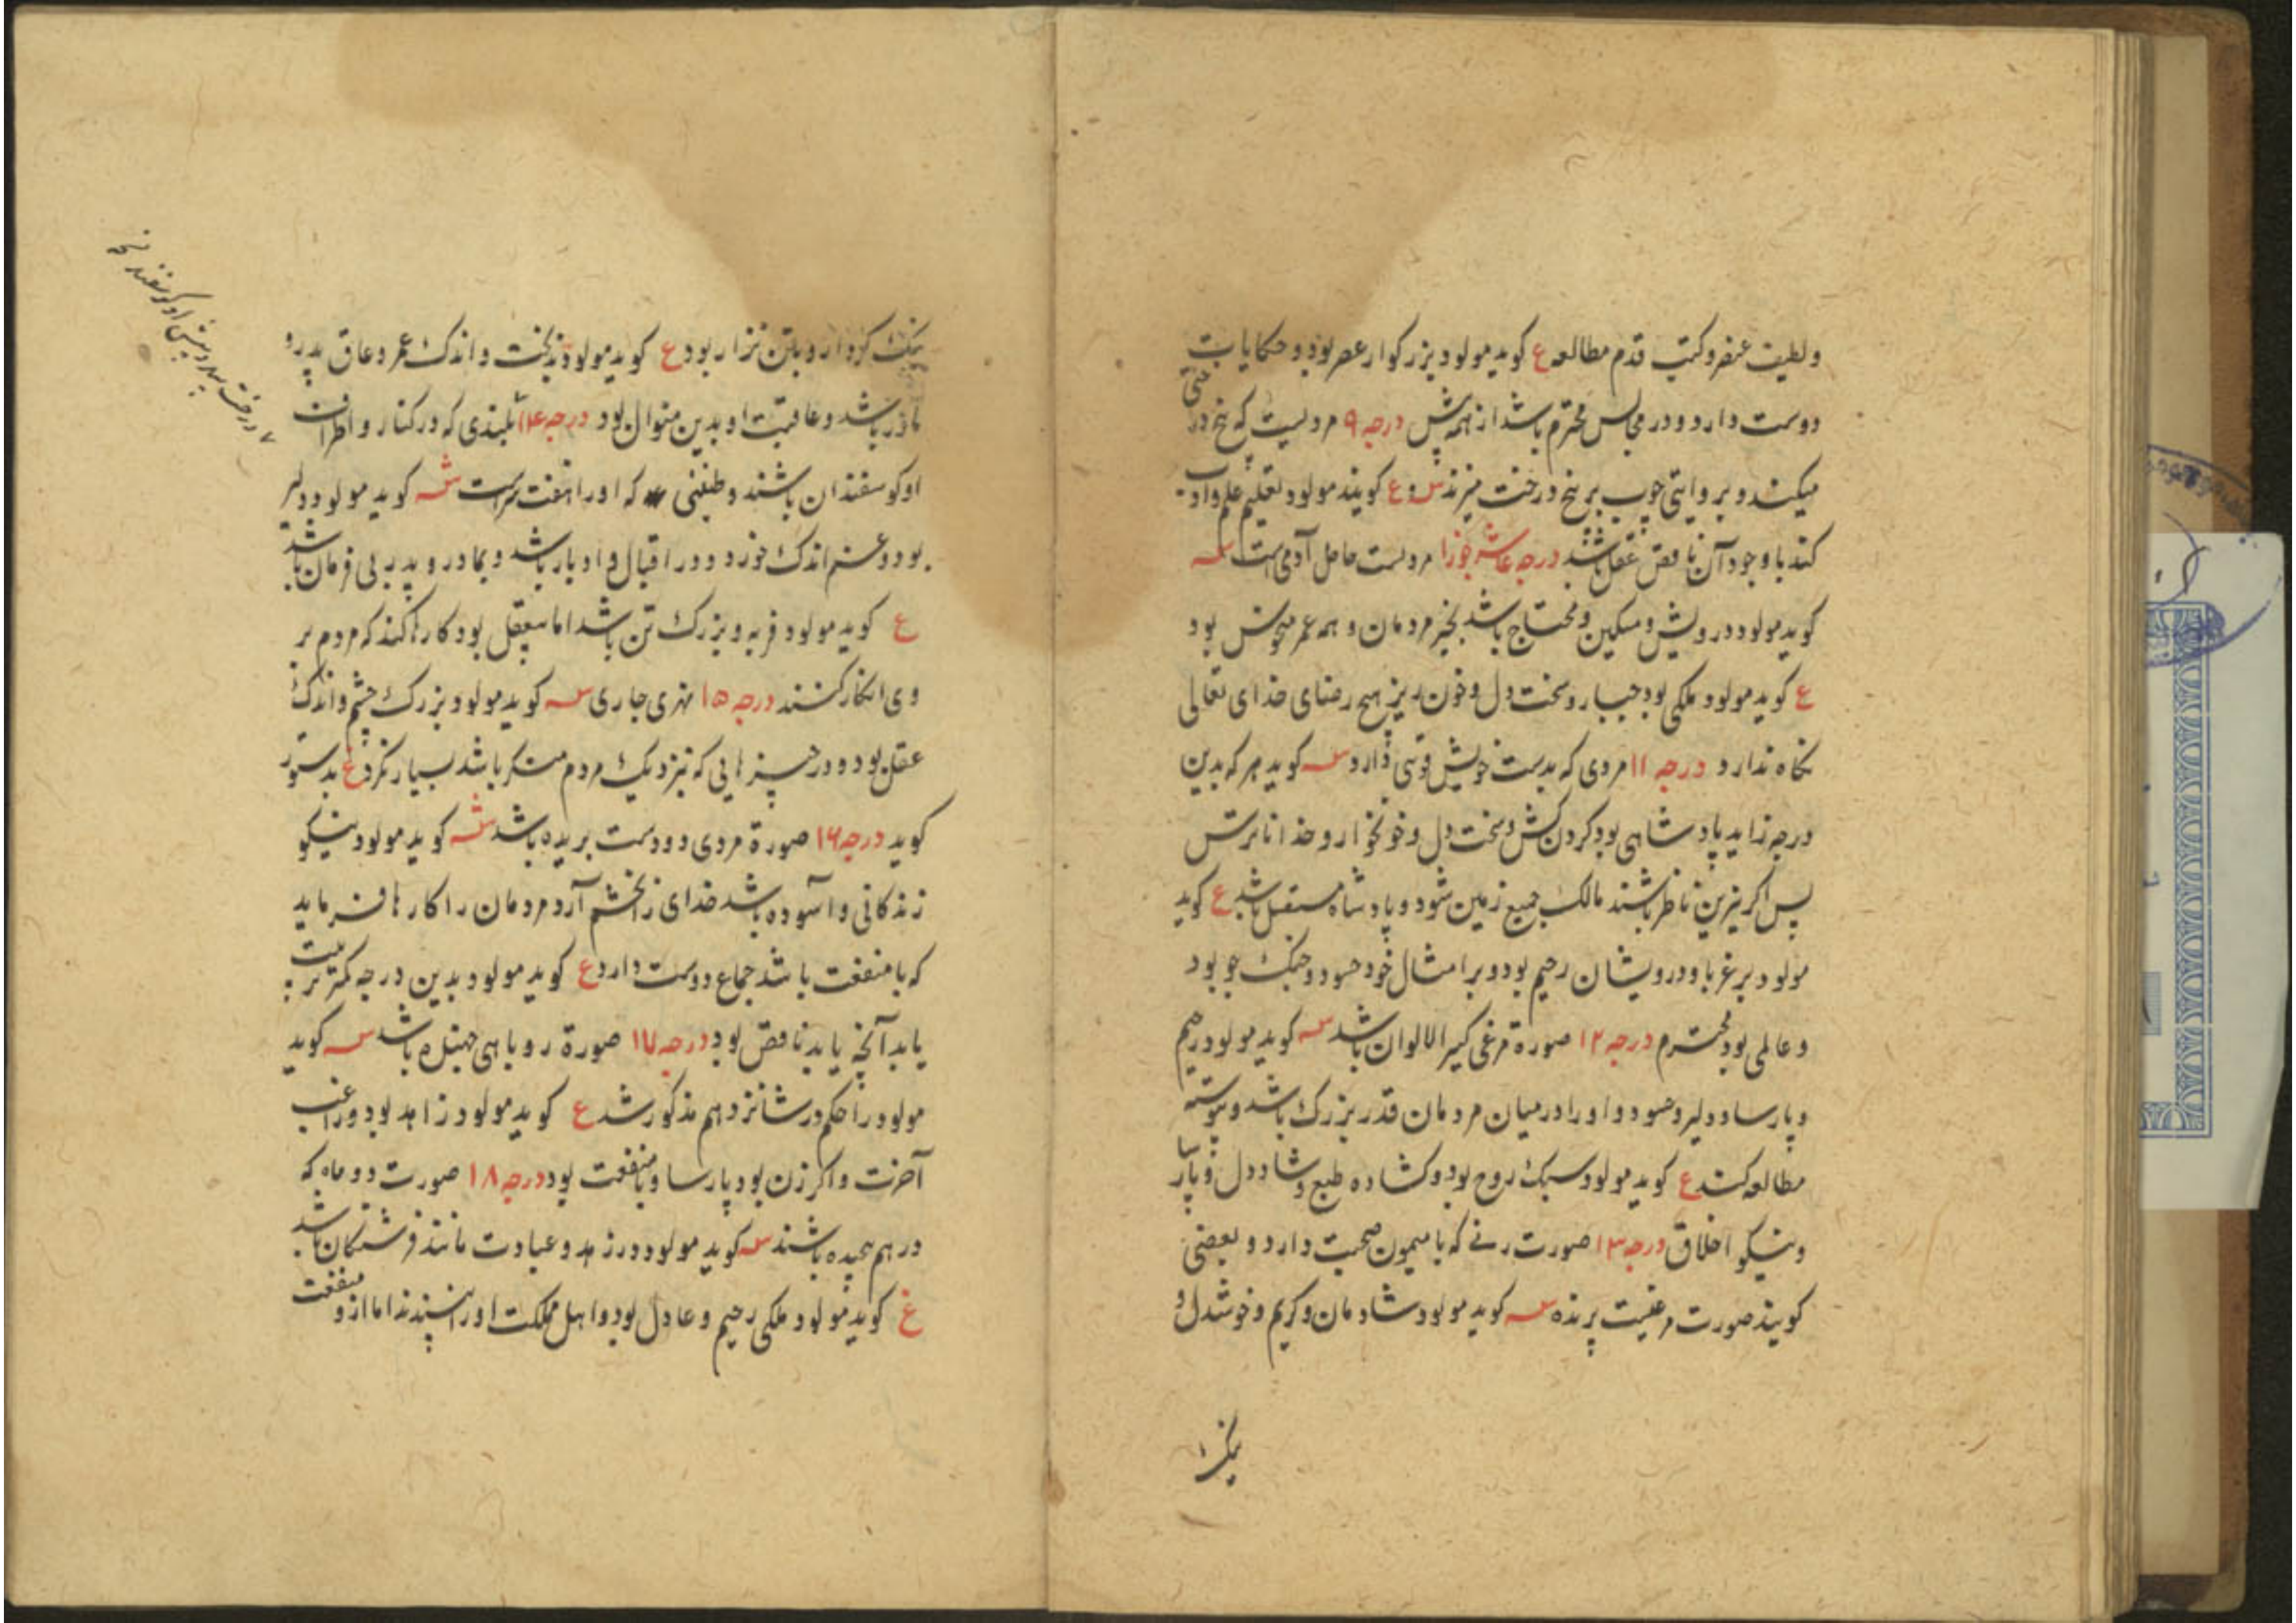 ولطیف عنصر و کتب قدم مطالعه ع کوید مولود بزرکوار عصر بود و حکایات
دوست دارد و در مجالس محترم باشد از همه پیش درجه ۹ مردیست که بیخ درختی
میکند و بروایتی چوب بر بیخ درخت میزند س و ع کویند مولود تعلیم علم و ادب
کند با وجود آن ناقص عقل باشد درجه عاشر جوزا مردیست حامل آدمی است سه
کوید مولود درویش و مسکین و محتاج باشد بخیر مردمان و همه عمر بود
ع کوید مولود ملکی بود جبار و سخت دل و خون ریز هیچ رضای خدای تعالی
نکاه ندارد درجه ۱۱ مردی که بدست خویش قوسی دارد سه کوید هر که بدین
درجه زاید پادشاهی بود کردن کش و سخت دل و خونخوار و خدا ناترس
پس اکر نیرین ناظر باشند مالک جمیع زمین شود و پادشاه مستقل باشد ع کوید
مولود بر غربا و درویشان رحیم بود و بر امثال خود حسود و جنک جو بود
و عالمی بود محتشم درجه ۱۲ صورة مرغی کثیر الالوان باشد سه کوید مولود رحیم
و پارسا و دلیر و حسود و اورا در میان مردمان قدر بزرک باشد و پیوسته
مطالعه کند ع کوید مولود سبک روح بود و کشاده طبع و شاد دل و پارسا
و نیکو اخلاق درجه ۱۳ صورت زنی که با میمون صحبت دارد و بعضی
کویند صورت مرغیست پرنده سه کوید مولود شادمان و کریم و خوشدل و
نیک
نیک کردار و بتن نزار بود ع کوید مولود بدبخت و اندک عمر و عاق پدر و
مادر باشد و عاقبت او بدین منوال بود درجه ۱۴ بلندی که در کنار و اطراف
او کوسفندان باشند و که اورا هفت سراست سه کوید مولود دلیر
بود و غم اندک خورد و در اقبال و ادبار باشد و بمادر و پدر بی فرمان باشد
ع کوید مولود فربه و بزرک تن باشد اما بیعقل بود کارها کند که مردم بر
وی انکار کنند درجه ۱۵ نهری جاری سه کوید مولود بزرک چشم و اندک
عقل بود و در چیزهایی که نزدیک مردم منکر باشد بسیار نکرد ع بدستور
کوید درجه ۱۶ صورة مردی دو دست بریده باشد سه کوید مولود نیکو
زندکانی و آسوده باشد خدای را بخشم آرد مردمان را کارها فرماید
که با منفعت باشد جماع دوست دارد ع کوید مولود بدین درجه کمتر تربیت
یابد آنچه یابد ناقص بود درجه ۱۷ صورة روباهی باشد سه کوید
مولود را حکم در شانزدهم مذکور شد ع کوید مولود زاهد بود و راغب
آخرت و اکر زن بود پارسا و با منفعت بود درجه ۱۸ صورت دو ماه که
در هم پیچیده باشند سه کوید مولود در زهد و عبادت مانند فرشتکان باشد
ع کوید مولود ملکی رحیم و عادل بود و اهل مملکت اورا پسندند اما ازو منفعت